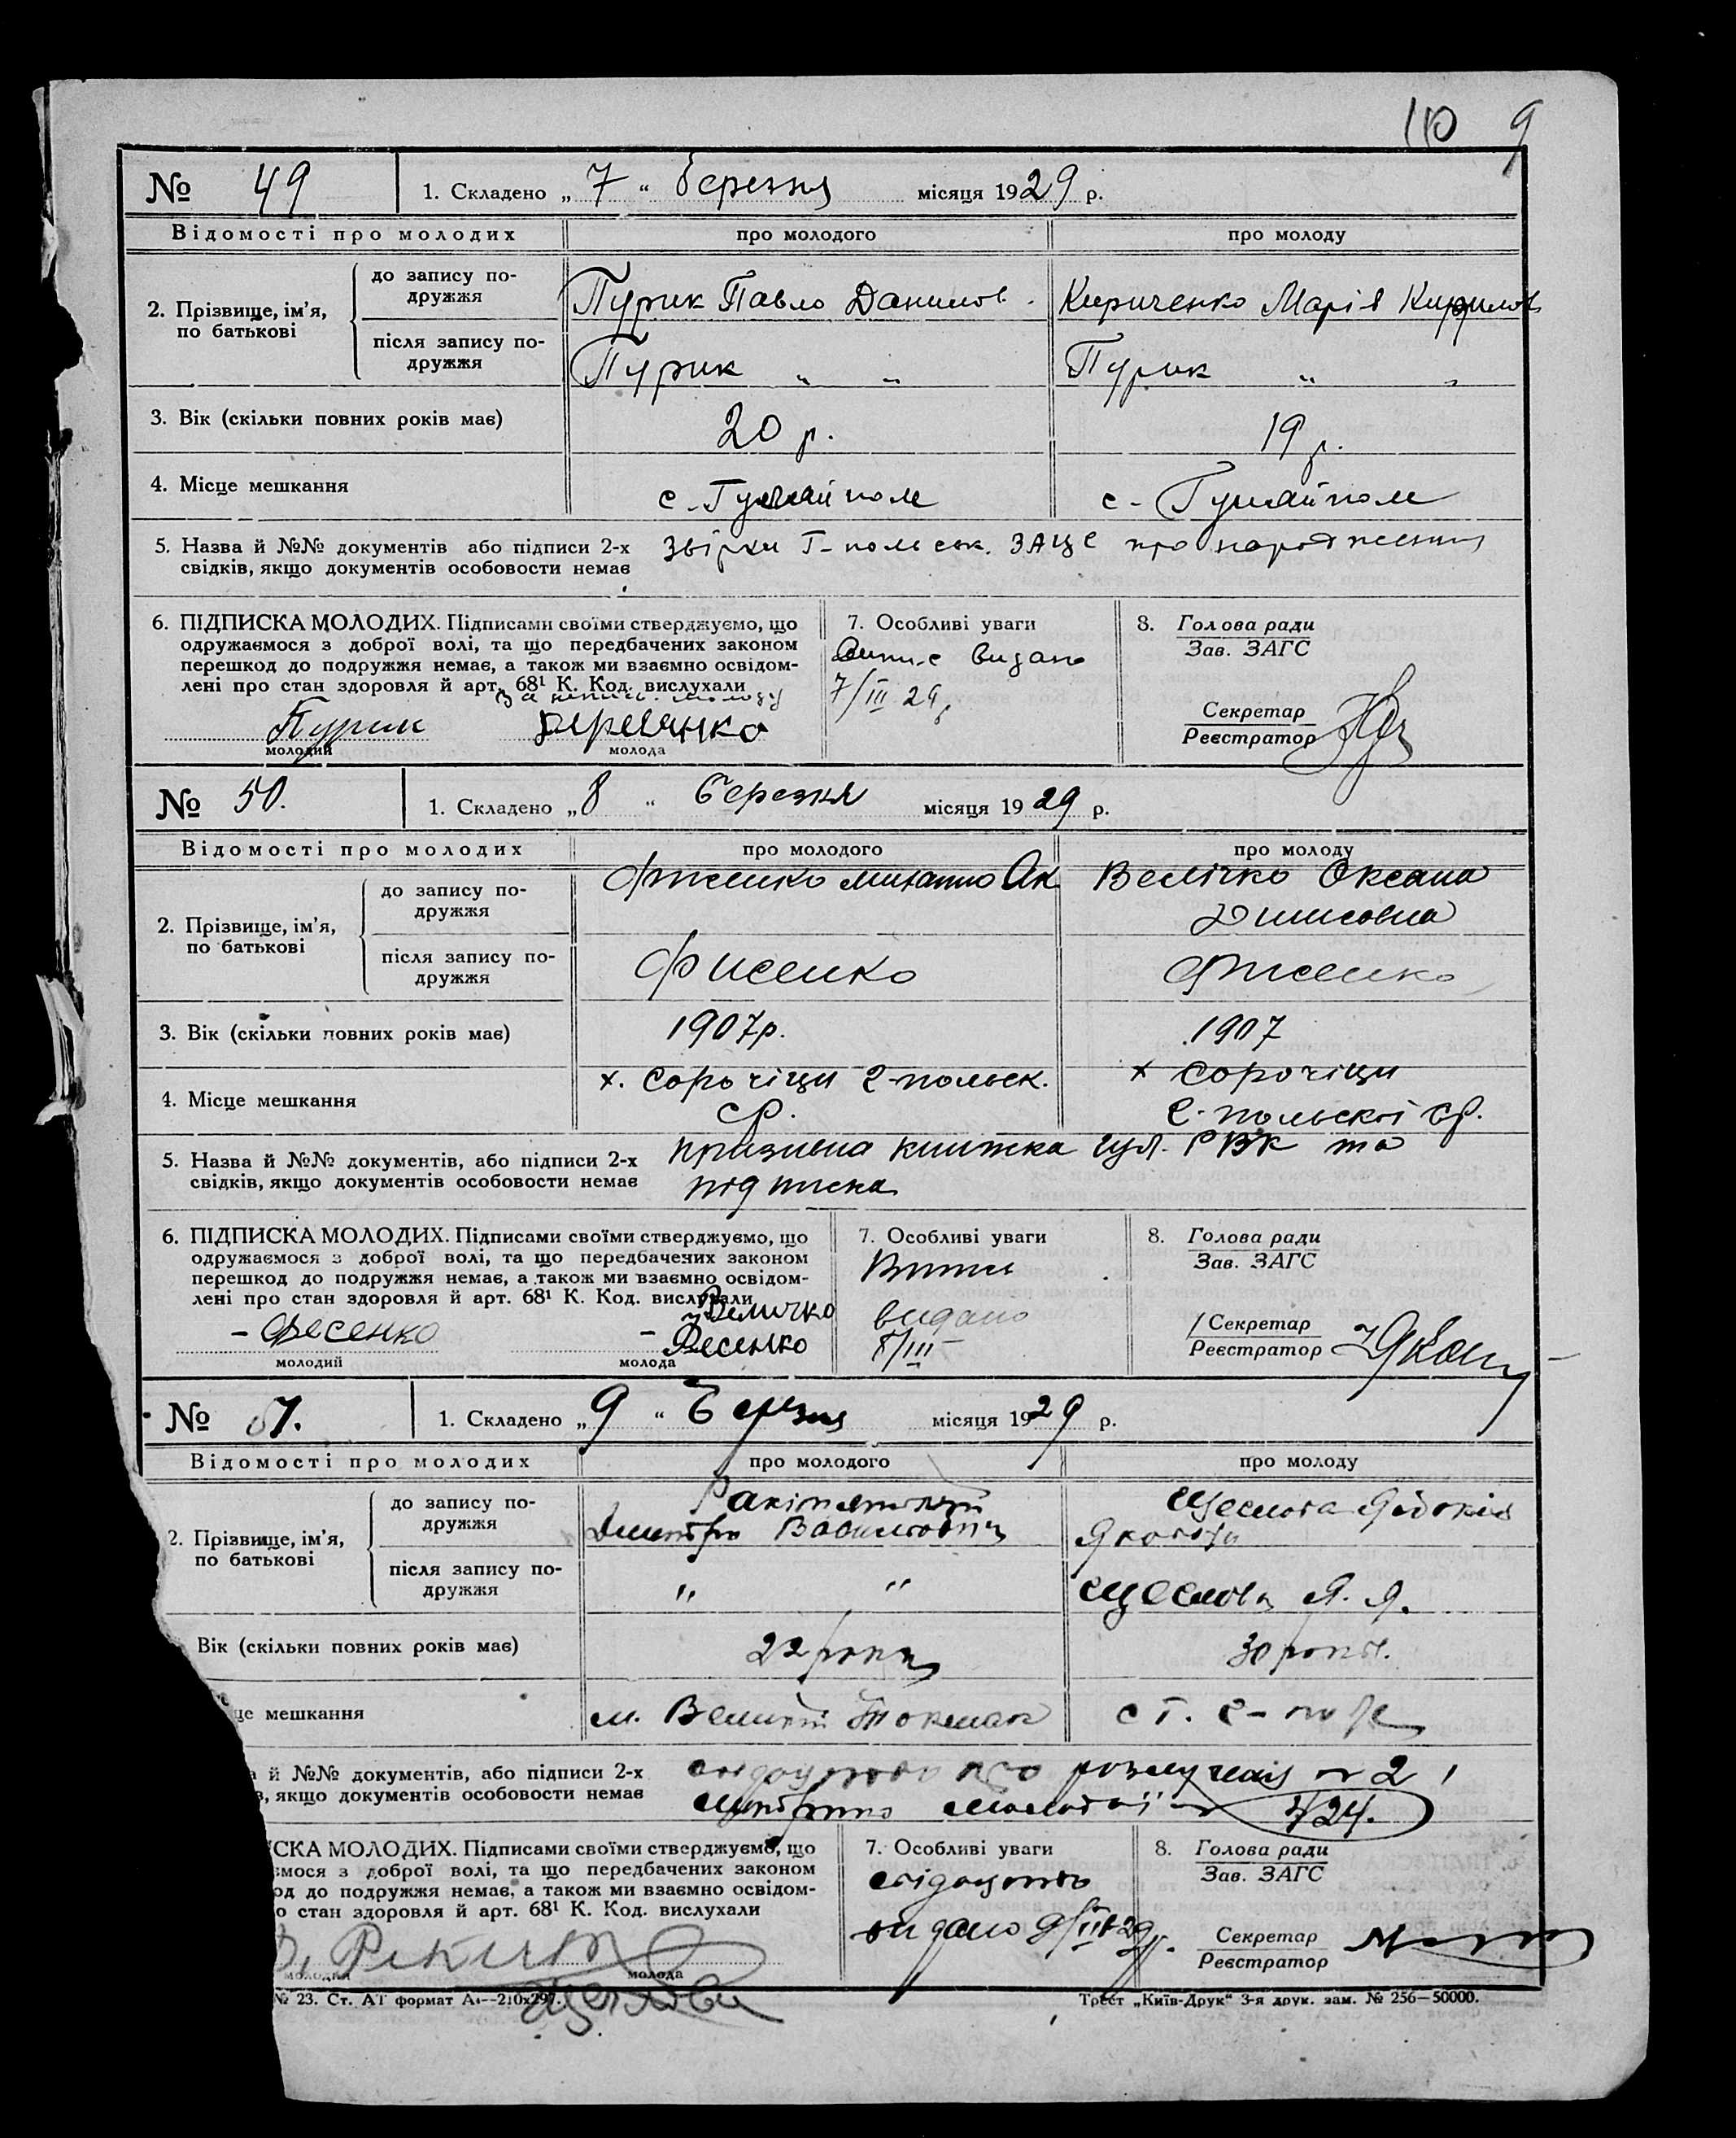 110 9
№ 49 1. Складено „ 7 “ березня місяця 1929 р.
Відомості про молодих про молодого про молоду
2. Прізвище, ім’я, по батькові
до запису по-
дружжя
Пурик Павло Данилов. Кириченко Марія Кирилов
після запису по-
дружжя
Пурик „ „ Пурик „ „
3. Вік (скільки повних років має) 20 р. 19 р.
4. Місце мешкання с. Гуляйполе с. Гуляйполе
5. Назва й №№ документів або підписи 2-х
свідків, якщо документів особовости немає
Г-польськ. ЗАЦС про народження
6. ПІДПИСКА МОЛОДИХ. Підписами своїми стверджуємо, що
одружаємося з доброї волі, та що передбачених законом
перешкод до подружжя немає, а також ми взаємно освідом-
лені про стан здоровля й арт. 68¹ К. Код. вислухали
за молоду
Пурик
молодий молода
7. Особливі уваги
видано
7/III 29
8. Голова ради
Зав. ЗАГС
Секретар
Реєстратор
№ 50. 1. Складено „ 8 “ Березня місяця 1929 р.
Відомості про молодих про молодого про молоду
2. Прізвище, ім’я,
по батькові
до запису по-
дружжя
Фисенко Михайло Ак. Велічко Оксана
після запису по-
дружжя
Фисенко Фисенко
3. Вік (скільки повних років має) 1907р. 1907
4. Місце мешкання
х. Сорочіци г-польск. ср.
х Сорочіци г-польскої ср.
5. Назва й №№ документів, або підписи 2-х
свідків, якщо документів особовости немає
призивна книжка гул. РВК та
підписка
6. ПІДПИСКА МОЛОДИХ. Підписами своїми стверджуємо, що
одружаємося з доброї волі, та що передбачених законом
перешкод до подружжя немає, а також ми взаємно освідом-
лені про стан здоровля й арт. 68¹ К. Код. вислухали
Величко
– Фесенко – Фесенко
молодий молода
7. Особливі уваги
видано
8/III
8. Голова ради
Зав. ЗАГС
Секретар
Реєстратор
№ 1. Складено „ 9 “ Березня місяця 1929 р.
Відомості про молодих про молодого про молоду
2. Прізвище, ім’я,
по батькові
до запису по-
дружжя
Дмитро Васильович
після запису по-
дружжя
„ „ Я. Я.
Вік (скільки повних років має) 22 роки 30 рокiв.
це мешкання м. Великий Токмак ст. г-поле
й №№ документів, або підписи 2-х
якщо документів особовости немає
свідоцтво про розлучення № 2
молодої № 724.
СКА МОЛОДИХ. Підписами своїми стверджуємо, що
ємося з доброї волі, та що передбачених законом
од до подружжя немає, а також ми взаємно освідом-
о стан здоровля й арт. 68¹ К. Код. вислухали
молода
7. Особливі уваги
свідоцтво
видано 9/III-29р.
8. Голова ради
Зав. ЗАГС
Секретар
Реєстратор
№ 23. Ст. АТ формат А₄—210х297. Трест „Київ-Друк“ 3-я друк. зам. № 256—50000.